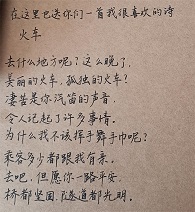 在这里也送你们一首我很喜欢的诗
火车
去什么地方呢？这么晚了，
美丽的火车，孤独的火车？
凄苦是你汽笛的声音，
令人记起了许多事情。
为什么我不该挥手舞手巾呢？
乘客多少都跟我有亲。
去吧，但愿你一路平安，
桥都坚固，隧道都光明。